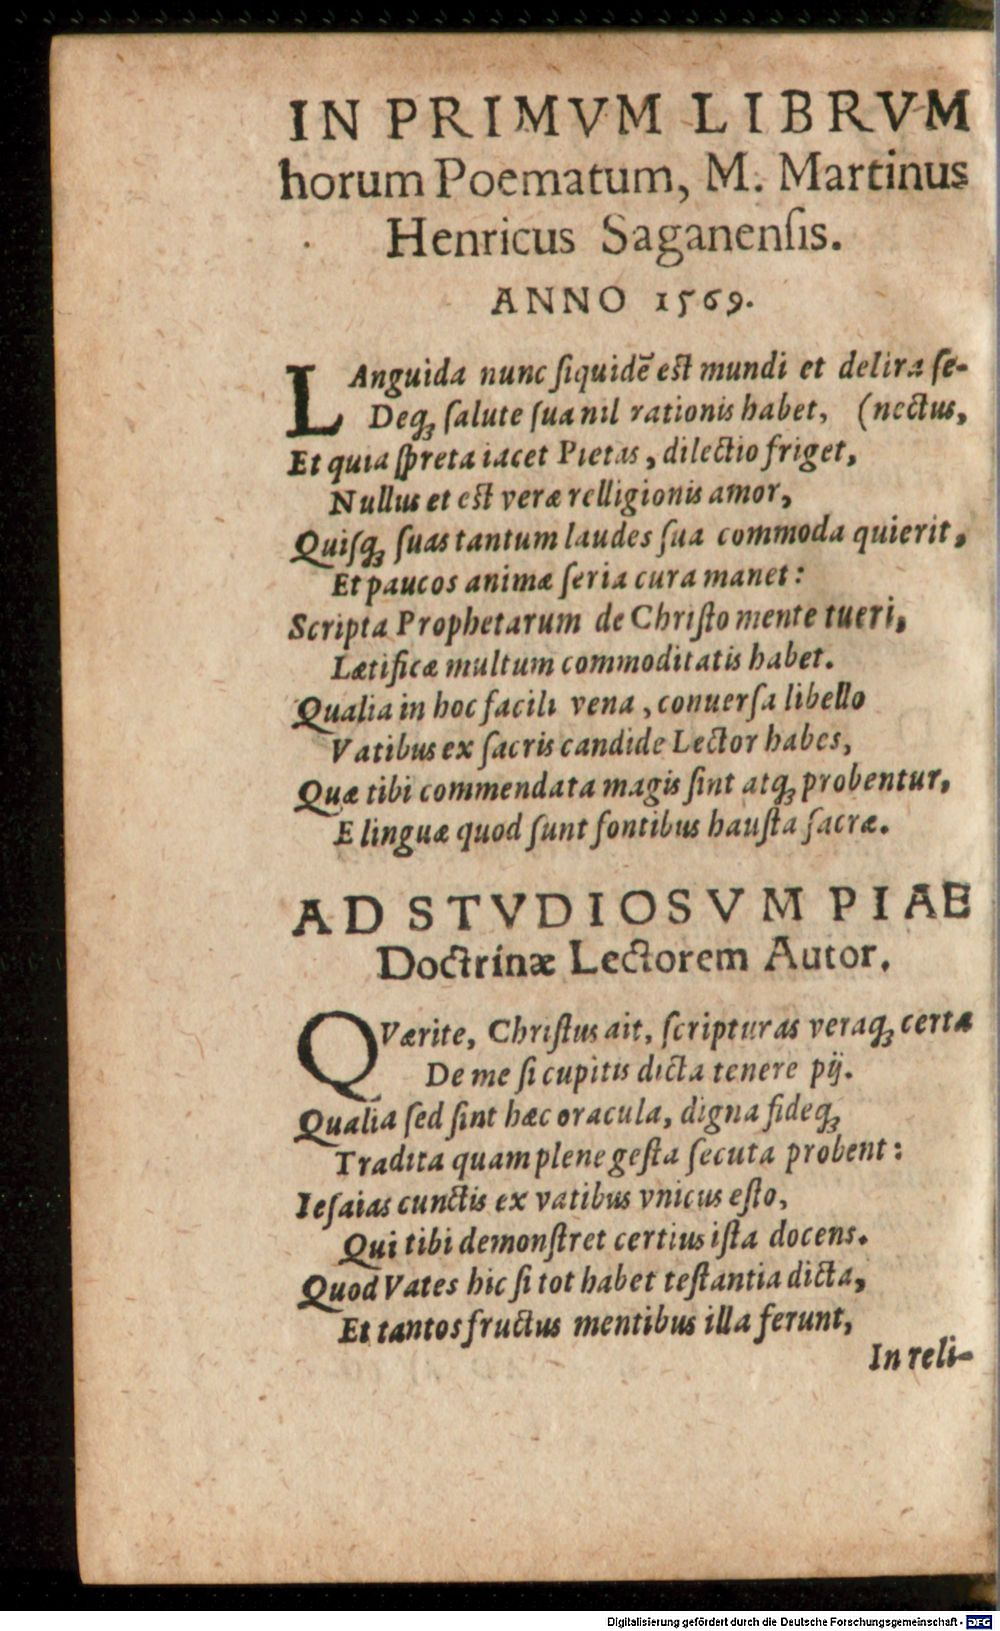 IN PRIMVM LIBRVM
horum Poematum, M. Martinus
Henricus Saganenſis.
ANNO 1569.
LAnguida nunc ſiquidē eſt mundi et delira ſe-
Deq́ꝫ ſalute ſua nil rationis habet, (nectus,
Et quia ſpreta iacet Pietas, dilectio friget,
Nullus et eſt veræ relligionis amor,
Quiſq́ꝫ ſuas tantum laudes ſua commoda quierit,
Et paucos animæ ſeria cura manet:
Scripta Prophetarum de Chriſto mente tueri,
Lætificæ multum commoditatis habet.
Qualia in hoc facili vena, conuerſa libello
Vatibus ex ſacris candide Lector habes,
Quæ tibi commendata magis ſint atq́ꝫ probentur,
E linguæ quod ſunt fontibus hauſta ſacræ.
AD STVDIOSVM PIAE
Doctrinæ Lectorem Autor.
QVærite, Chriſtus ait, ſcripturas veraq́ꝫ certæ
De me ſi cupitis dicta tenere pij.
Qualia ſed ſint hæc oracula, digna fideq́ꝫ
Tradita quam plene geſta ſecuta probent:
Ieſaias cunctis ex vatibus vnicus eſto,
Qui tibi demonſtret certius iſta docens.
Quod Vates hic ſi tot habet teſtantia dicta,
Et tantos fructus mentibus illa ferunt,
In reli-
Digitalisierung gefördert durch die Deutsche Forschungsgemeinschaft - DFG